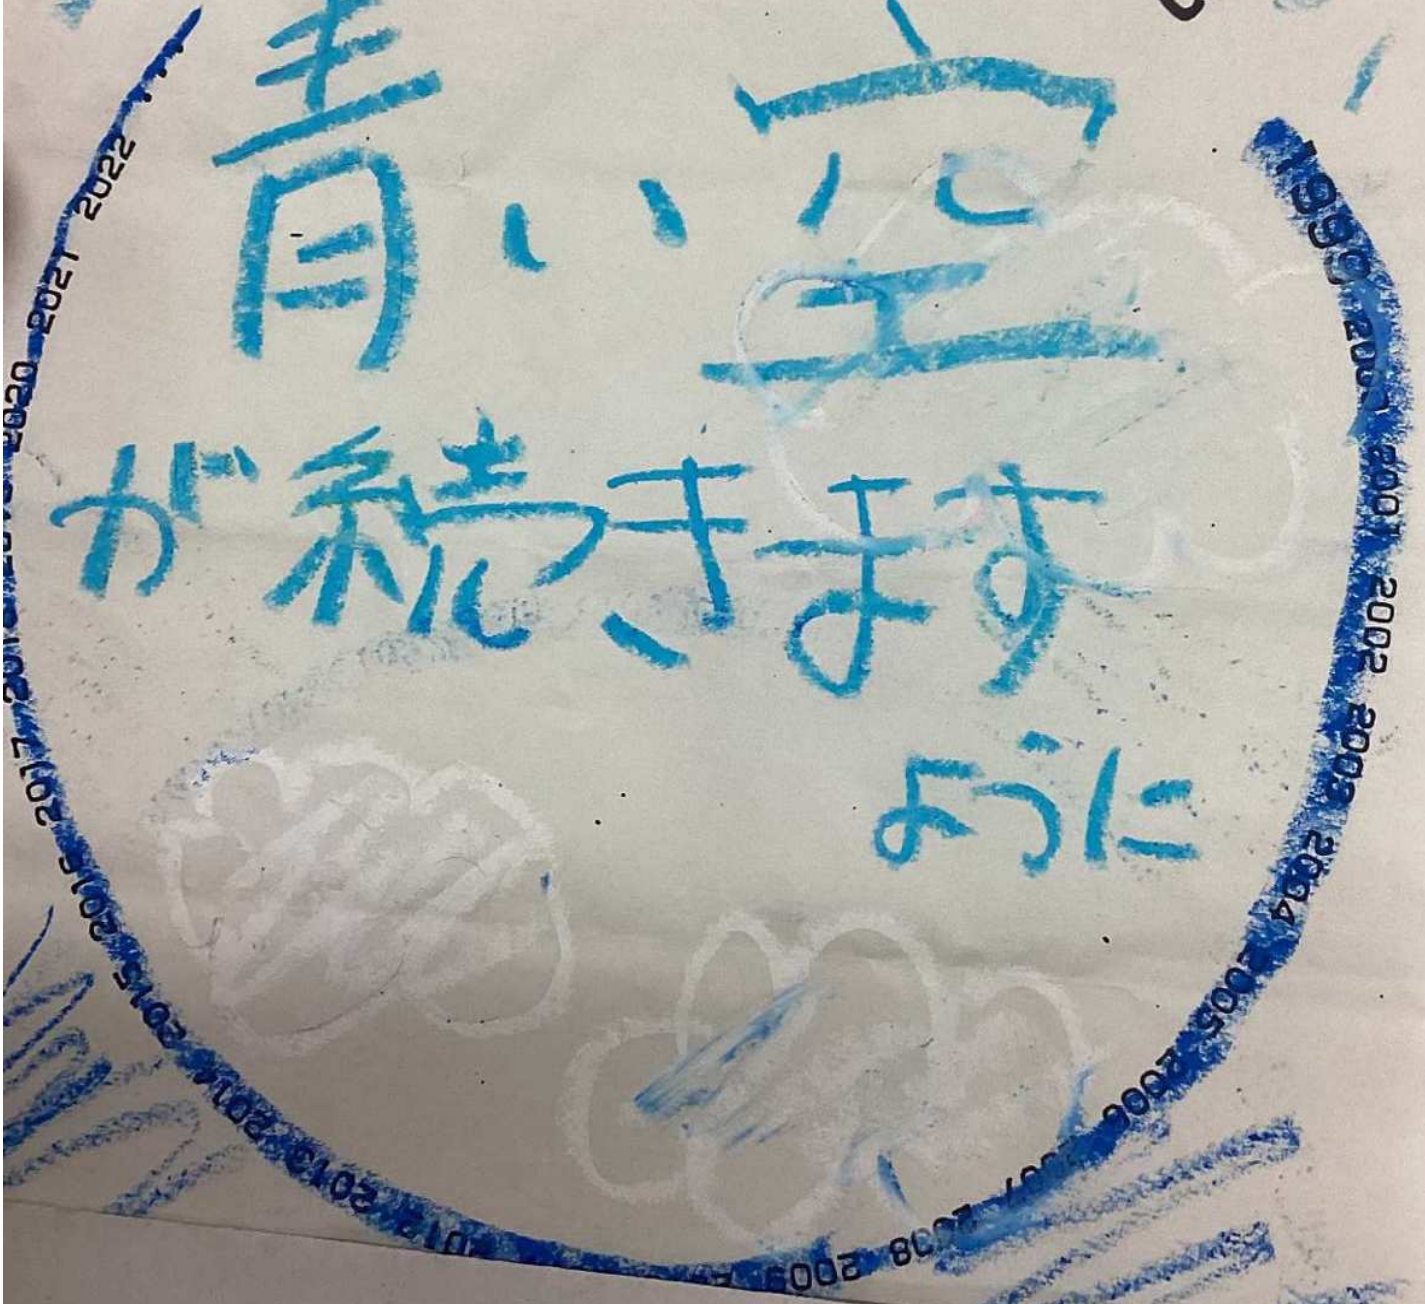 青い空
が続きます
ように
1999 2000 2001 2002 2003 2004 2005 2006 2007 2008 2009
2012 2013 2014 2015 2016 2017
2020 2021 2022